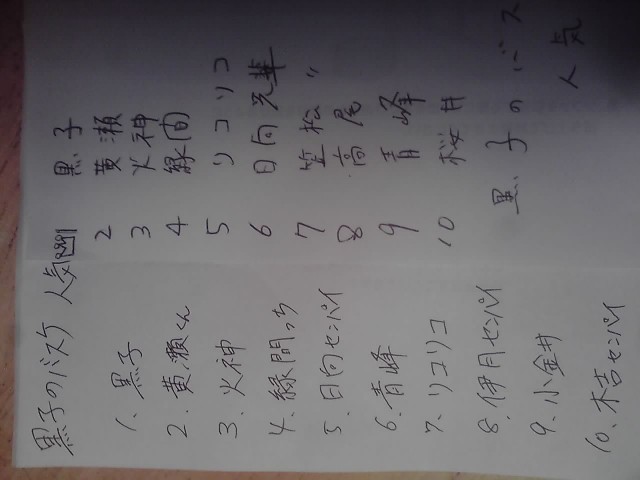 黒子のバスケ 人気
1、黒子
2、黄瀬くん
3、火神
4、緑間っち
5、日向センパイ
6、青峰
7、リコリコ
8、伊月センパイ
9、小金井
10、木吉センパイ
1 黒子
2 黄瀬
3 火神
4 緑間
5 リコリコ
6 日向先輩
7 笠松 〃
8 高尾
9 青峰
10 桜井
黒子のバス
人気